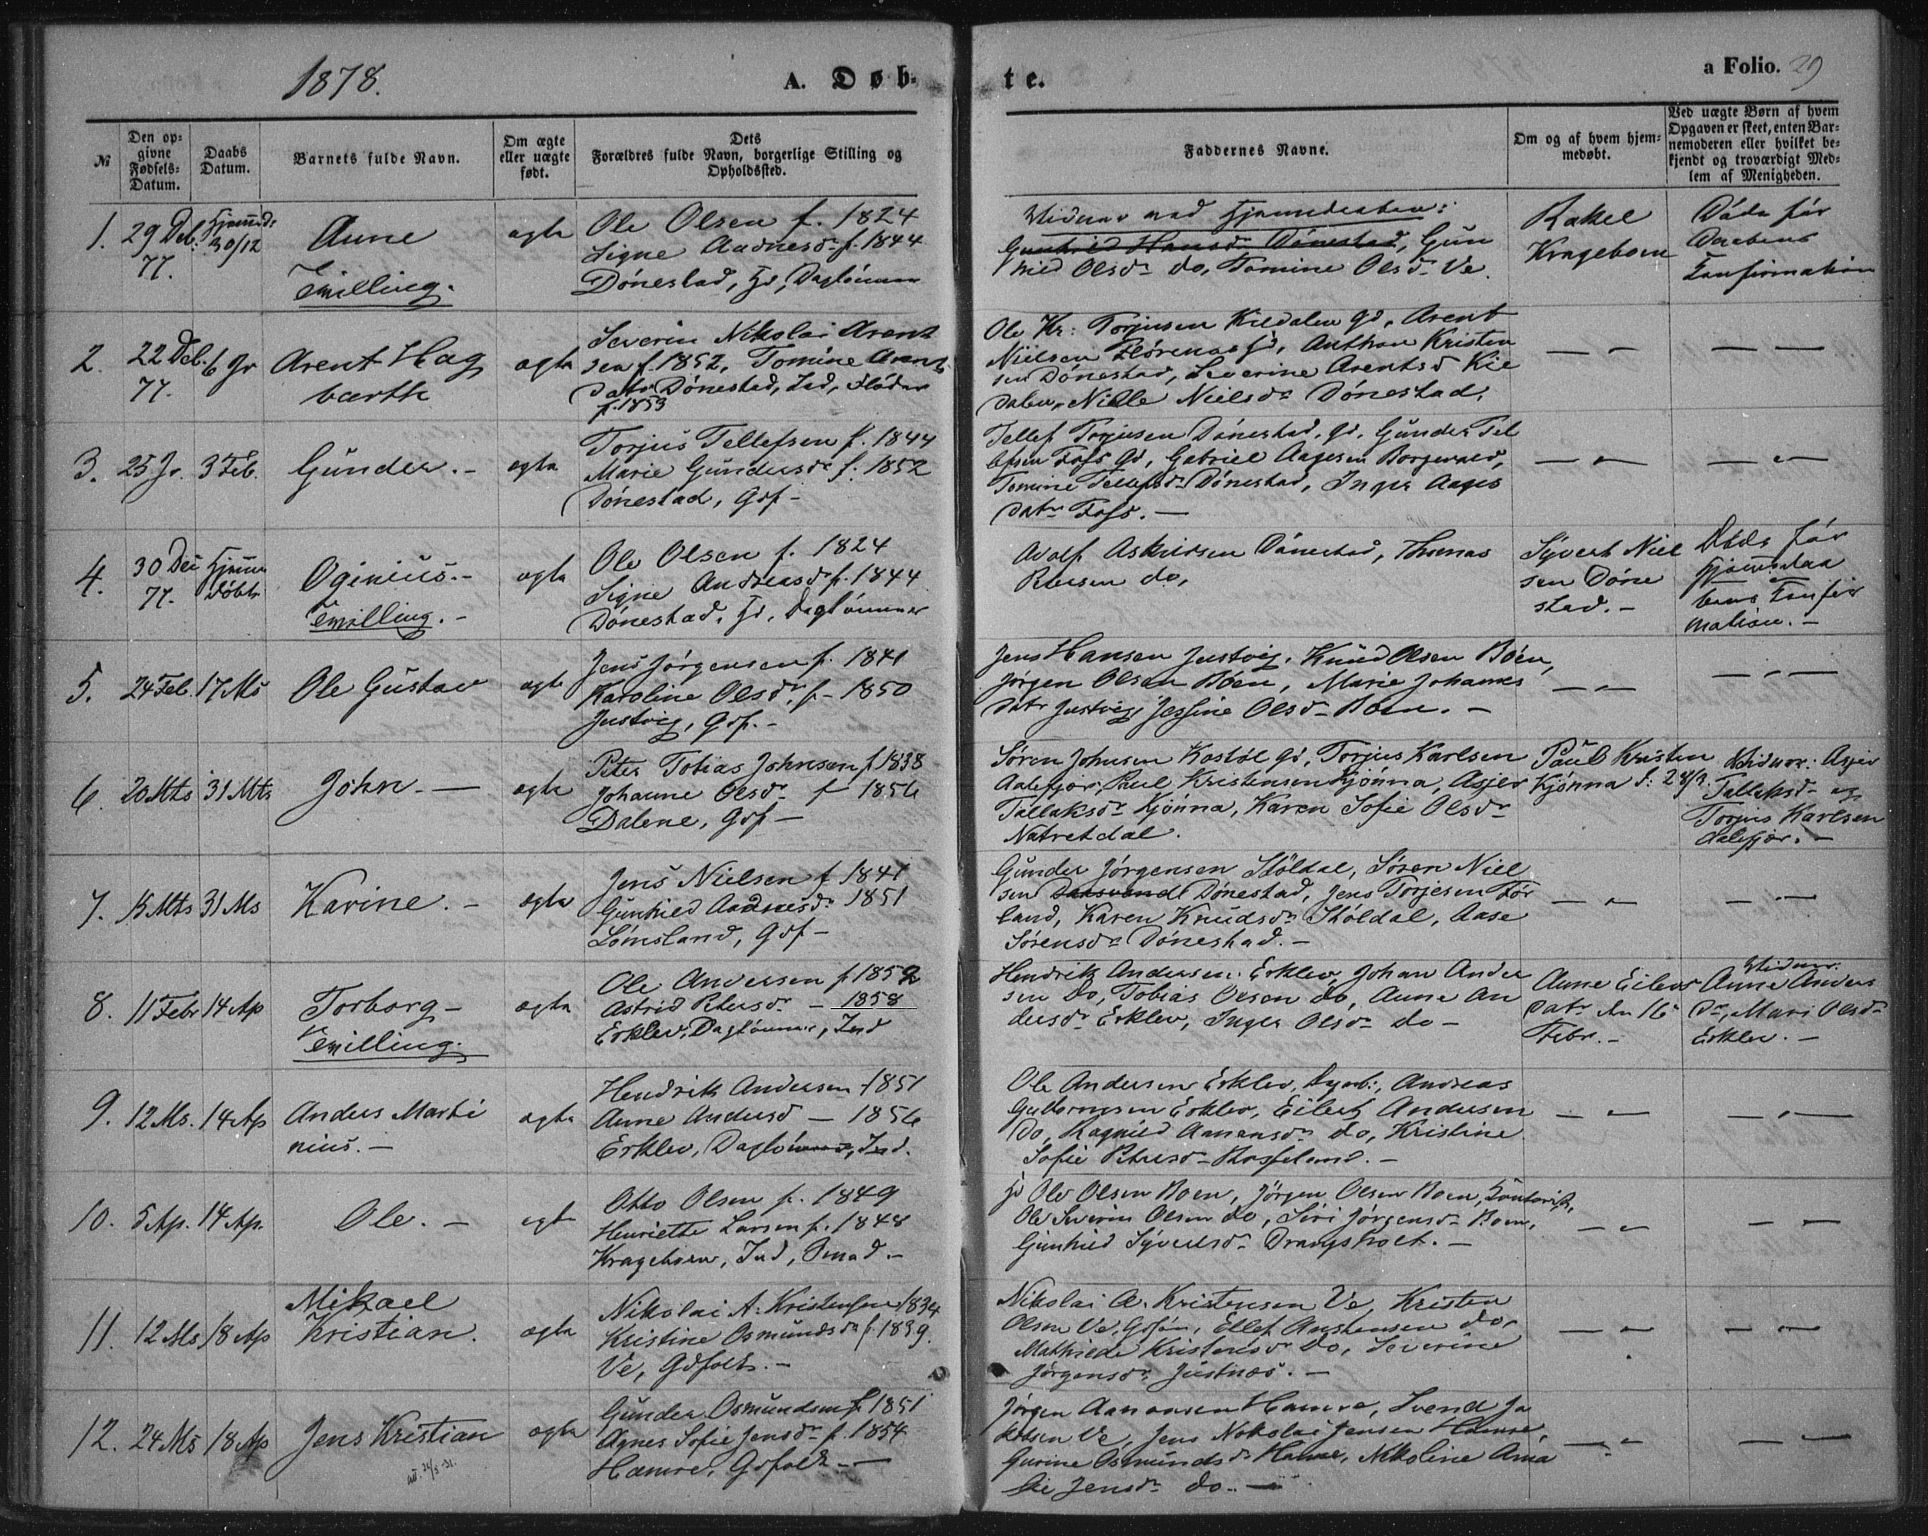 1878.
A. Døb-
te.
a Folio. 29
№
Den op-
givne
Fødsels-
Datum.
Daabs
Datum.
Barnets fulde Navn.
Om ægte
eller uægte
født.
Dets
Forældres fulde Navn, borgerlige Stilling og
Opholdssted.
Faddernes Navne.
Om og af hvem hjem-
medøbt.
Ved uægte Børn af hvem
Opgaven er skeet, enten Bar-
nemoderen eller hvilket be-
kjendt og troværdigt Med-
lem af Menigheden.
1.
29 Deb.
77.
30/12
Anne
Tvilling.
ægte
Ole Olsen f. 1824
Signe Aadnesdr f. 1844
Dønestad, Daglønner
Vidner ved Hjemmedaaben:
Gunhild Hansdr Dønestad, Gun
hild Olsdr do, Tomine Olsdr Ve.
Rakel
Krageboen
Døde før
Daabens
Konfirmation
2.
22 Deb.
77.
6 Jr
Arent Hag
barth
ægte
Severin Nikolai Arent
sen f. 1852, Tomine Arents
Datr Dønestad, Ind,
f. 1853
Ole Kr: Torjusen Kildalen gd, Arent
Nielsen, Anthon Kristen
sen Dønestad, Severine Arentsd Kil
dalen, Nille Nielsdr Dønestad.
— " —
— " —
3.
25 Jr.
3 Feb.
Gunder. -
ægte
Torjus Tellefsen f. 1844
Marie Gundersdr f. 1852
Dønestad, Gdf -
Tellef Torjusen Dønestad, gd, Gunder Tel
lefsen Foss gd, Gabriel Aagesen Borgevald,
Tomine Tellefsdr Dønestad, Inger Aages
datr Foss. —
— " —
— " —
4.
30 Dec
77.
Hjemme
Døbt
Oginius. -
Tvilling. -
ægte
Ole Olsen f. 1824
Signe Andreasdr f. 1844
Dønestad, Daglønner
Adolf Askildsen Dønestad, Thomas
do,
Syvert Niel
sen Døne
stad. -
Døde før
hjemmedaa
bens Konfir
mation. -
5.
24 Feb.
17 Ms
Ole Gustav
ægte
Jens Jørgensen f. 1841
Karoline Olsdr f - 1850
Justvig, Gdf. -
Jens Hansen Justvig, Knud Olsen Boen,
Jørgen Olsen Boen, Marie Johannes
datr Justvig, Jessine Olsdr Boen. -
— " —
— " —
6.
20 Mts
31 Mts
John. —
ægte
Peter Tobias Johnsen f 1838
Johanne Olsdr f 1856
Dalene, Gdf —
Søren Johnsen Kostøl gd, Torjus Karlsen
Aalefjær, Paul Kristensen Kjønna, Asjer
Tallaksdr Kjønna, Karen Sofie Olsdr
Natvetdal.
Paul Kristen
Kjønna
Vidner: Asjer
Tallaksdr og
Torjus Karlsen
Aalefjær. -
7.
15 Mts
31 Ms
Karine. -
ægte
Jens Nielsen f 1841
Gunhild Aadnesdr 1851
Lømsland, Gdf -
Gunder Jørgensen Støldal, Søren Niel
sen Dønestad, Jens Torjesen For
land, Karen Knudsdr Støldal, Aase
Sørensdr Dønestad. -
— " —
— " —
8.
11 Febr
14 Ap
Torborg -
Tvilling.
ægte
Ole Andersen f 1852
Astrid Petersdr — 1858
Erklev, Daglønner, Ind
Hendrik Andersen Erklev, Johan Ander
sen do, Tobias Olsen do, Anne An
dersdr Erklev, Inger Olsdr do —
Anne Eilevs
datr den 16
Febr. -
Vidner:
Anne Anders
dr, Mari Olsdr
Erklev. -
9.
12 Ms.
14 Ap
Anders Marti
nius. —
ægte
Hendrik Andersen - 1851
Anne Andersd — 1856
Erklev, Daglønner, Ind.
Ole Andersen Erklev, Andreas
Guttormsen Erklev, Eilert Andersen
do, Ragnild Aanensdr do, Kristine
Sofie Petersdr. -
— " —
— " —
10.
5 Ap.
14 Ap.
Ole. -
ægte
Otto Olsen f. 1849
Henriette Larsen f. 1848
Krageboen, Ind, Smed. -
Ole Olsen Boen, Jørgen Olsen Boen,
Ole Severin Olsen do, Siri Jørgensdr Boen,
Gunhild Syvertsdr Drangsholt. -
— " —
— " —
11.
12 Ms
18 Ap
Mikael
Kristian.
ægte
Nikolai A. Kristensen 1834
Kristine Osmundsdr f. 1839.
Ve, Gdfolk. -
Nikolai A. Kristensen Ve, Kristen
Olsen Ve, Ellef Austensen do,
Mathilde Kristensdr do, Severine
Jørgensdr Justnæs. -
— " —
— " —
12.
24 Ms
18 Ap
Jens Kristian
ægte
Gunder Osmundsen f. 1851
Agnes Sofie Jensdr f. 1854
Hamre, Gdfolk —
Jørgen Aanonsen Hamre, Svend Ja
kobsen Ve, Jens Nikolai Jensen Hamre,
Gurine Osmundsdr Hamre, Nikoline Ama
lie Jensdr do. —
— " —
— " —